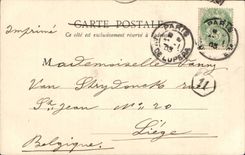 CARTE POSTALE
Ce côté est exclusivement réservé à
Imprimé
PARIS
PARIS
Mademoiselle Fanny
Van Strydonck
St Jean Nº 20
Liège
Belgique